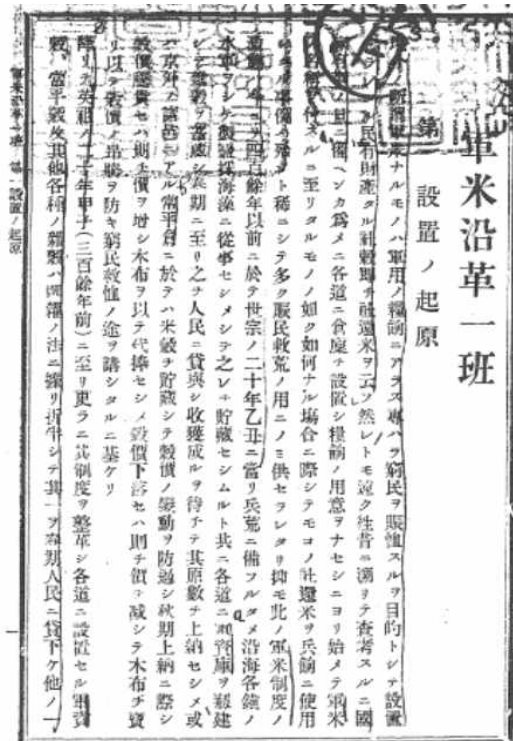 軍米沿革一班
第一 設置ノ起原
所謂軍米ナルモノハ軍用ノ糧餉ニアラス專ハラ窮民ヲ賑恤スルヲ目的トシテ設置
民有財產タル社穀即チ社還米ヲ云フ然レトモ遠ク往昔ニ溯リテ查考スルニ國
日ニ備ヘンカ爲メニ各道ニ倉庫ヲ設置シ糧餉ノ用意ヲナセシニヨリ始メテ軍米
名稱ヲ付スルニ至リタルモノノ如ク如何ナル塲合ニ際シテモコノ社還米ヲ兵餉ニ使用
事例ハ殆ント稀ニシテ多ク賑民救荒ノ用ニノミ供セラレタリ抑モ此ノ軍米制度ノ
四百餘年以前ニ於テ世宗ノ二十年乙丑ニ當リ兵荒ニ備フルタメ沿海各鎭ノ
水軍ヲシテ煮鹽採海藻ニ從事セシメシテ之レヲ貯藏セシムルト共ニ各道ニ軍資庫ヲ剏建
シテ雜穀ヲ富歲春期ニ至リ之ヲ人民ニ貸與シ收穫成ルヲ待チテ其原數ヲ上納セシメ或
ハ京外各諸邑ニアル常平倉ニ於テハ米穀ヲ貯藏シテ穀價ノ變動ヲ防遏シ秋期上納ニ際シ
穀價騰貴セハ則チ價ヲ增シ木布ヲ以テ代捧セシメ穀價下落セハ則チ價ヲ減シテ木布ヲ賣
リ以テ穀價ノ昂騰ヲ防キ窮民救恤ノ途ヲ講シタルニ基ケリ
降リテ英祖ノ二十年甲子(三百餘年前)ニ至リ更ラニ其制度ヲ整革シ各道ニ設置セル軍資
穀、常平穀及其他各種ノ雜穀ハ糶糴ノ法ニ據リ折半シテ其一ヲ春期人民ニ貸下ケ他ノ一
軍米沿革一班 第一 設置ノ起原
一